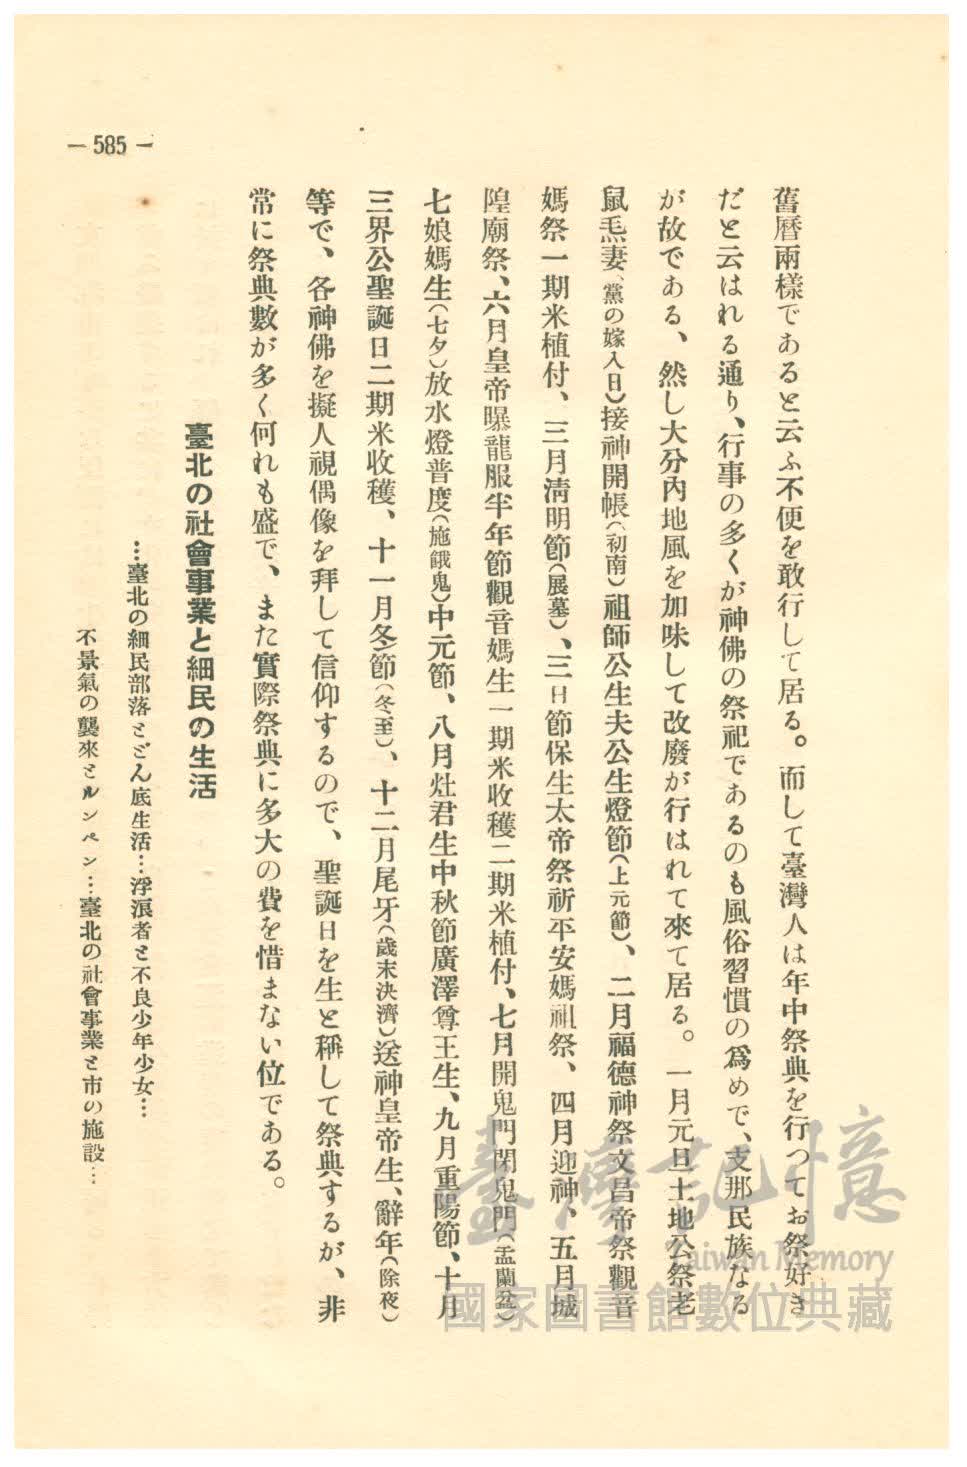 舊曆兩樣であると云ふ不便を敢行して居る。而して臺灣人は年中祭典を行つてお祭好き
だと云はれる通り、行事の多くが神佛の祭祀であるのも風俗習慣の爲めで、支那民族なる
が故である、然し大分內地風を加味して改廢が行はれて來て居る。一月元旦土地公祭老
鼠𤆬妻、黨の嫁入日)接神開帳(初南)祖師公生夫公生燈節(上元節)、二月福德神祭文昌帝祭觀音
媽祭一期米植付、三月淸明節(展墓)、三日節保生太帝祭祈平安媽祖祭、四月迎神、五月城
隍廟祭、六月皇帝曝龍服半年節觀音媽生一期米收穫二期米植付、七月開鬼門閉鬼門(盂蘭盆)
七娘媽生(七夕)放水燈普度(施餓鬼)中元節、八月灶君生中秋節廣澤尊王生、九月重陽節、十月
三界公聖誕日二期米收穫、十一月冬節(冬至)、十二月尾牙(歲末決濟)送神皇帝生、辭年(除夜)
等で、各神佛を擬人視偶像を拜して信仰するので、聖誕日を生と稱して祭典するが、非
常に祭典數が多く何れも盛で、また實際祭典に多大の費を惜まない位である。
臺北の社會事業と細民の生活
…臺北の細民部落とどん底生活…浮浪者と不良少年少女…
不景氣の襲來とルンペン…臺北の社會事業と市の施設…
— 585 —
臺灣記憶
Taiwan Memory
國家圖書館數位典藏